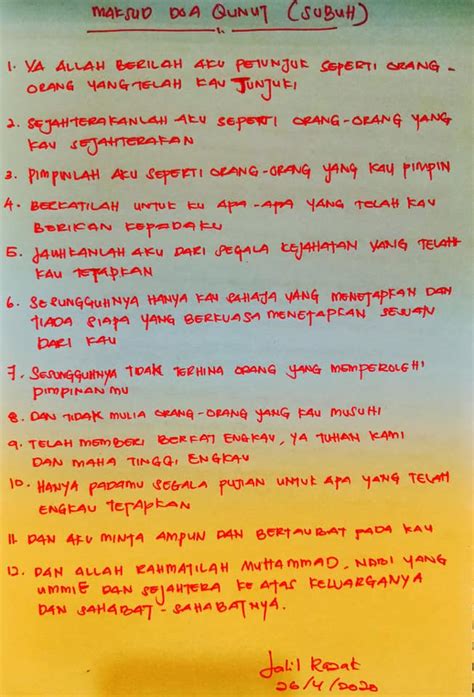 MAKSUD DOA QUNUT (SUBUH)
1. YA ALLAH BERILAH AKU PETUNJUK SEPERTI ORANG-
ORANG YANG TELAH KAU TUNJUKI
2. SEJAHTERAKANLAH AKU SEPERTI ORANG-ORANG YANG
KAU SEJAHTERAKAN
3. PIMPINLAH AKU SEPERTI ORANG-ORANG YANG KAU PIMPIN
4. BERKATILAH UNTUK KU APA-APA YANG TELAH KAU
BERIKAN KEPADAKU
5. JAUHKANLAH AKU DARI SEGALA KEJAHATAN YANG TELAH
KAU TETAPKAN
6. SESUNGGUHNYA HANYA KAU SAHAJA YANG MENETAPKAN DAN
TIADA SIAPA YANG BERKUASA MENETAPKAN SELAIN
DARI KAU
7. SESUNGGUHNYA TIDAK TERHINA ORANG YANG MEMPEROLEHI
PIMPINAN MU
8. DAN TIDAK MULIA ORANG-ORANG YANG KAU MUSUHI
9. TELAH MEMBERI BERKAT ENGKAU, YA TUHAN KAMI
DAN MAHA TINGGI ENGKAU
10. HANYA PADAMU SEGALA PUJIAN UNTUK APA YANG TELAH
ENGKAU TETAPKAN
11. DAN AKU MINTA AMPUN DAN BERTAUBAT PADA KAU
12. DAN ALLAH RAHMATILAH MUHAMMAD, NABI YANG
UMMIE DAN SEJAHTERA KE ATAS KELUARGANYA
DAN SAHABAT-SAHABATNYA.
Jalil Razak
26/4/2020